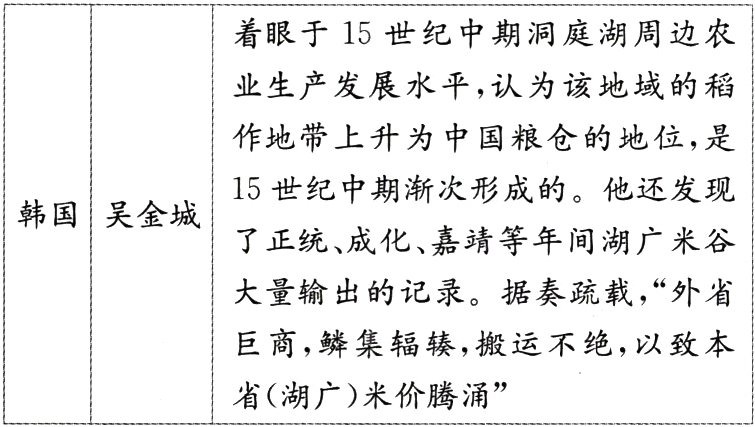 韩国
吴金城
着眼于 15 世纪中期洞庭湖周边农
业生产发展水平,认为该地域的稻
作地带上升为中国粮仓的地位,是
15 世纪中期渐次形成的。他还发现
了正统、成化、嘉靖等年间湖广米谷
大量输出的记录。据奏疏载,“外省
巨商,鳞集辐辏,搬运不绝,以致本
省(湖广)米价腾涌”